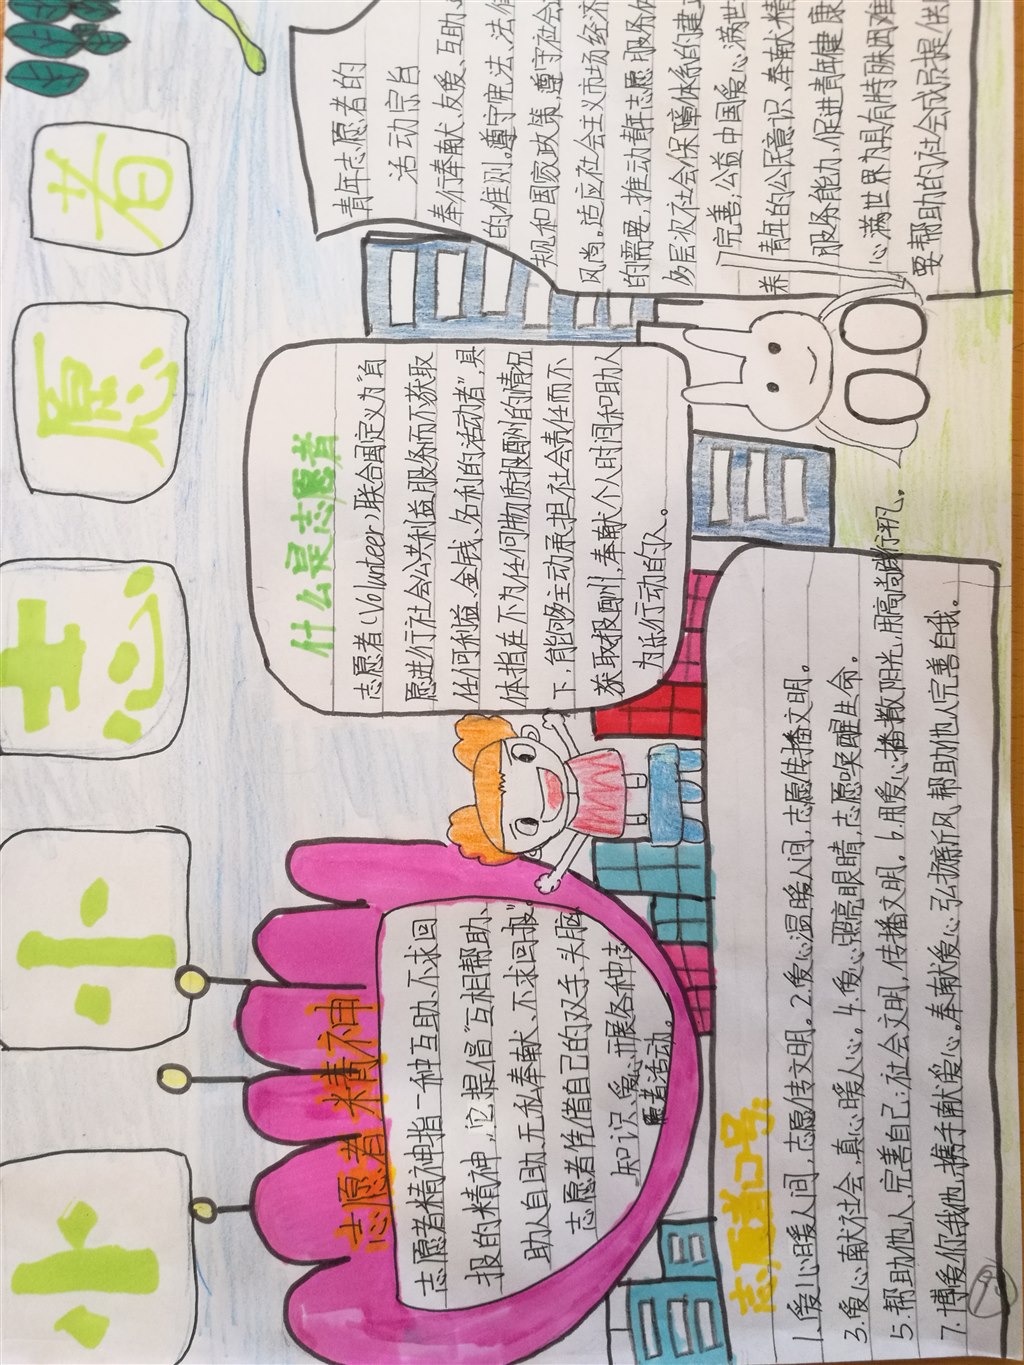 小小志愿者
志愿者精神
志愿者精神指一种互助、不求回
报的精神,它提倡“互相帮助、
助人自助、无私奉献、不求回报”。
志愿者凭借自己的双手、头脑、
知识、爱心开展各种志
愿者活动。
什么是志愿者
志愿者(Volunteer)联合国定义为“自
愿进行社会公共利益服务而不获取
任何利益、金钱、名利的活动者”,具
体指在不为任何物质报酬的情况
下,能够主动承担社会责任而不
获取报酬,奉献个人时间和助人
为乐行动的人。
青年志愿者的
活动宗旨
奉行奉献、友爱、互助、
的准则。遵守宪法、法律
规和国家政策,遵守社会
风尚。适应社会主义市场经济
的需要,推动青年志愿服务
多层次社会保障体系的建
完善,公益中国爱心满世
养青年的公民意识、奉献精
服务能力,促进青年健康
心满世界具有特殊困难
要帮助的社会成员提供
志愿者口号:
1.爱心暖人间,志愿传文明。2.爱心温暖人间,志愿传播文明。
3.爱心献社会,真心暖人心。4.爱心照亮眼睛,志愿唤醒生命。
5.帮助他人,完善自己;社会文明,传播文明。6.用爱心播散阳光,用高尚践行平凡。
7.博爱你我他,携手献爱心。奉献爱心,弘扬新风,帮助他人完善自我。